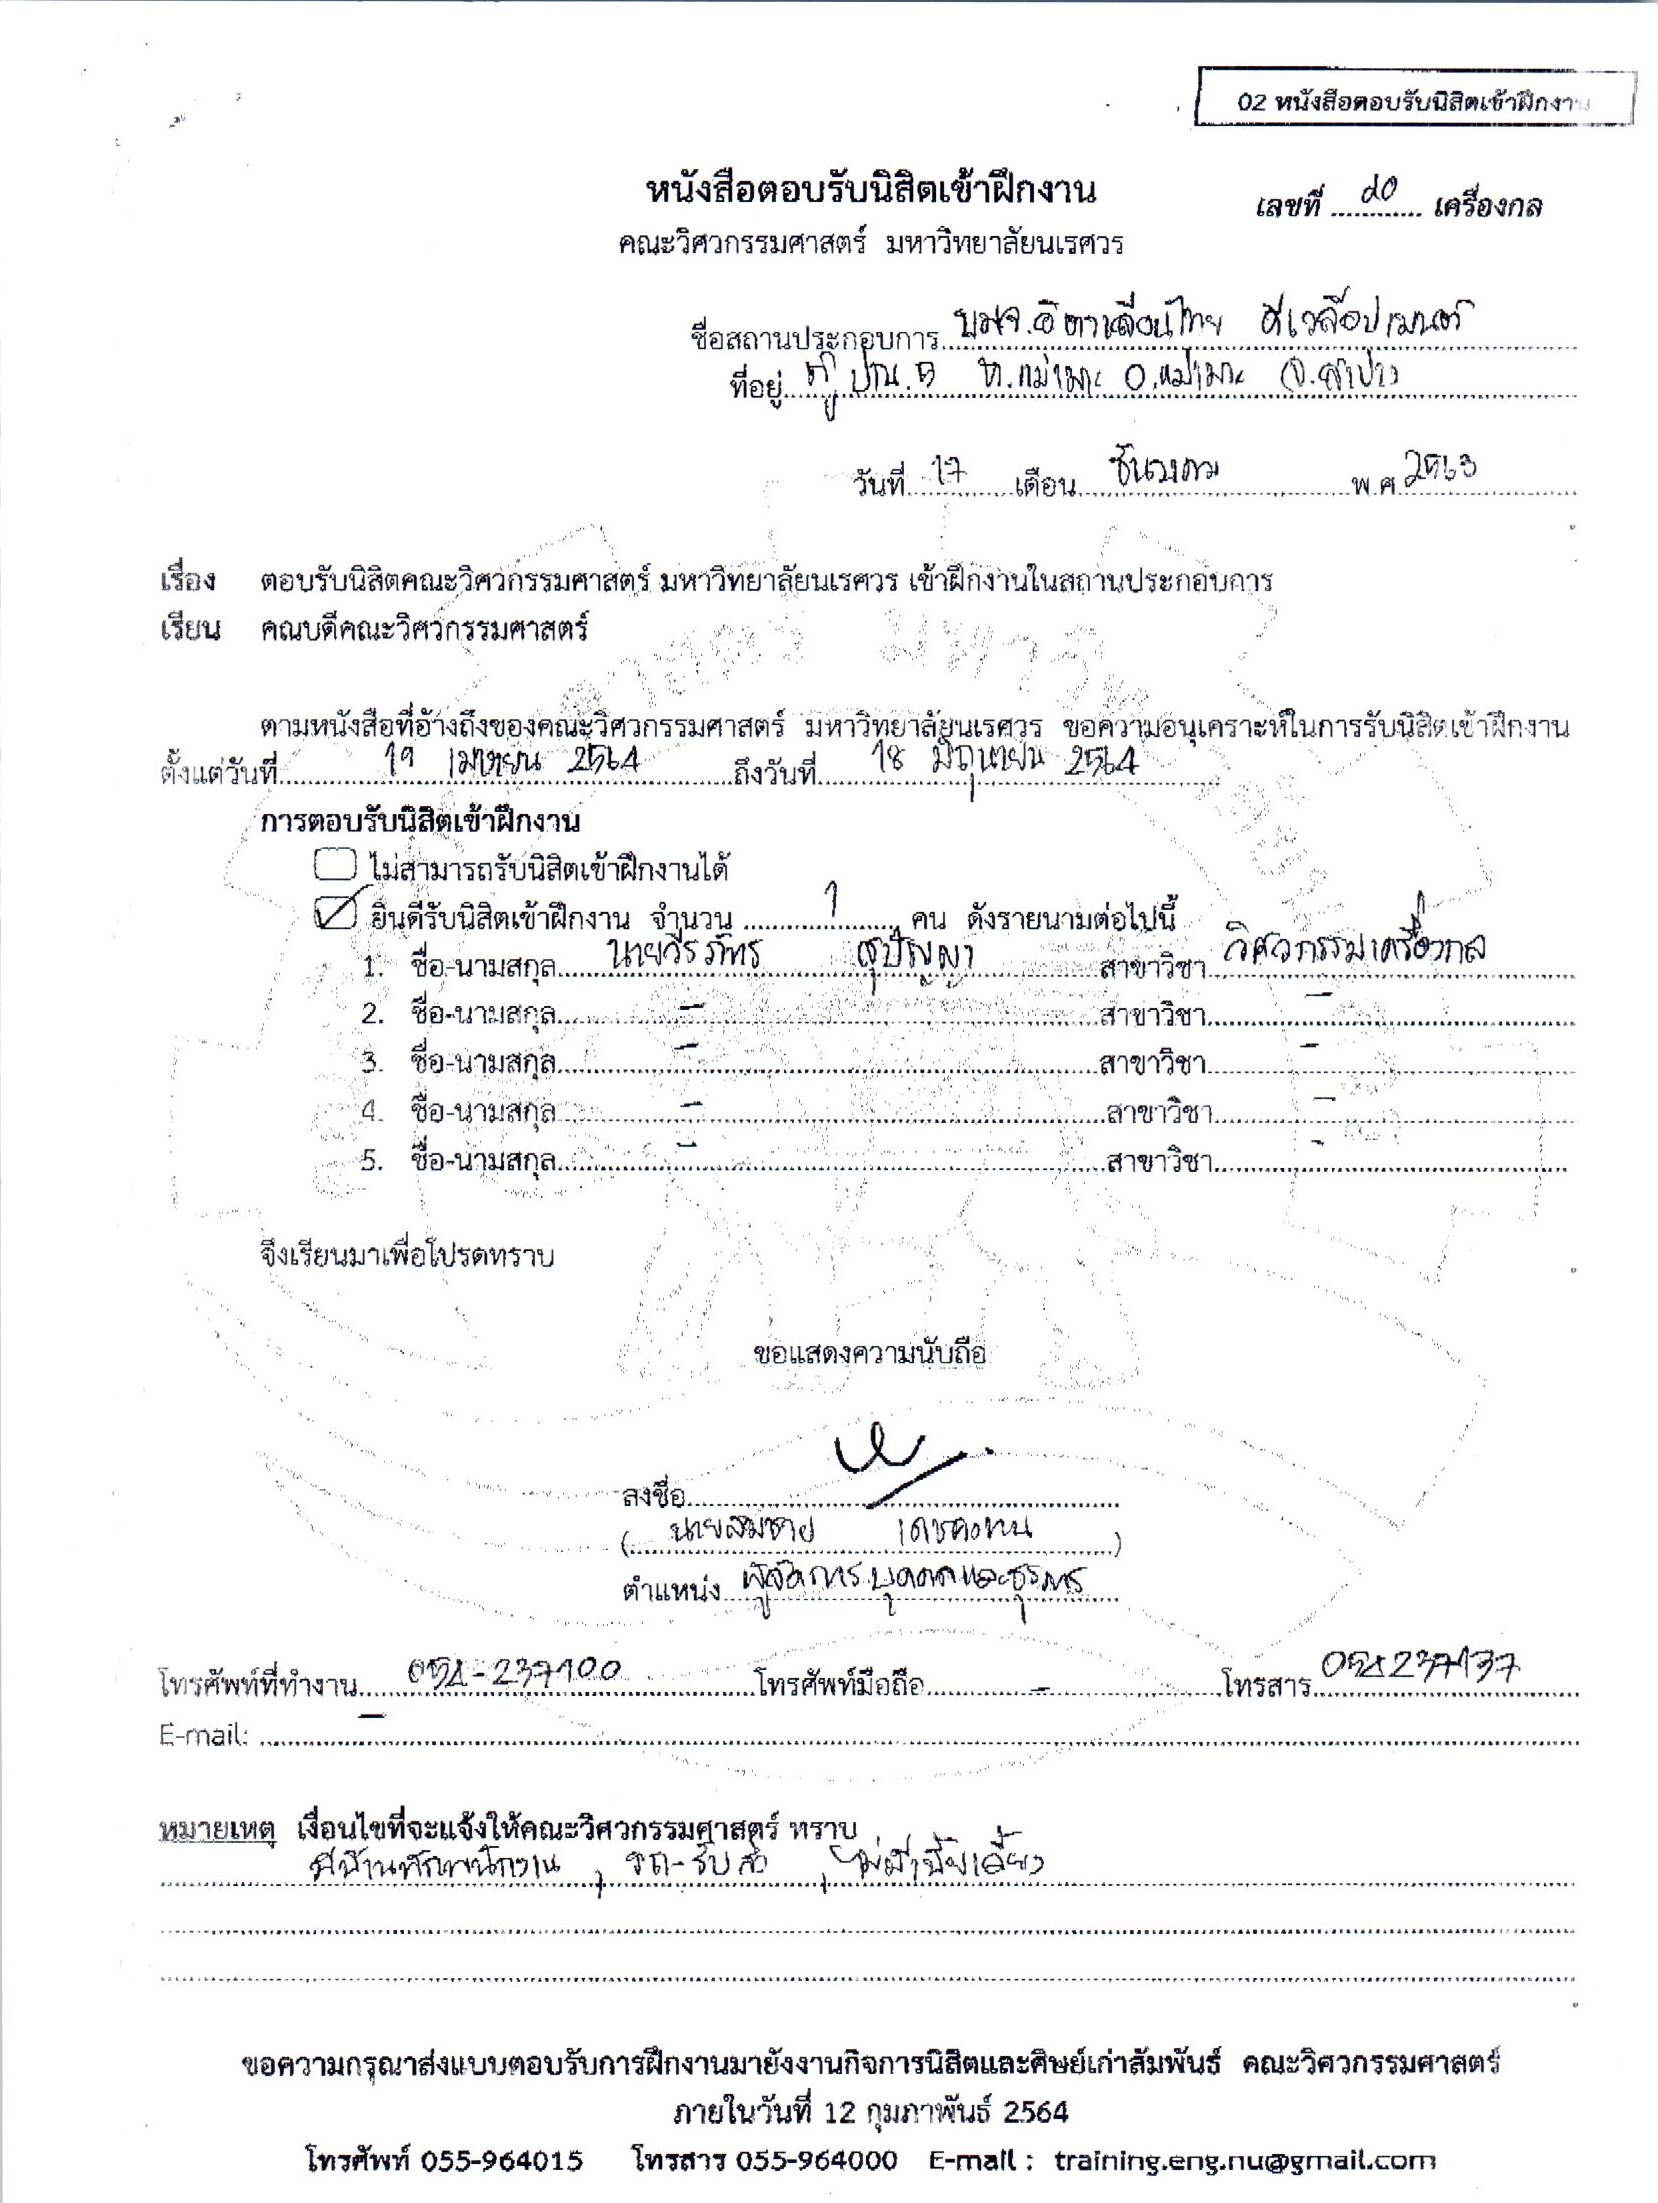 02 หนังสือตอบรับนิสิตเข้าฝึกงาน
หนังสือตอบรับนิสิตเข้าฝึกงาน
เลขที่ ............ เครื่องกล
คณะวิศวกรรมศาสตร์ มหาวิทยาลัยนเรศวร
ชื่อสถานประกอบการ บมจ.อิตาเลียนไทย ดีเวล๊อปเมนต์
ที่อยู่ ตู้ ปณ. ต.แม่เมาะ อ.แม่เมาะ จ.ลำปาง
วันที่ 17 เดือน ธันวาคม พ.ศ 2563
เรื่อง ตอบรับนิสิตคณะวิศวกรรมศาสตร์ มหาวิทยาลัยนเรศวร เข้าฝึกงานในสถานประกอบการ
เรียน คณบดีคณะวิศวกรรมศาสตร์
ตามหนังสือที่อ้างถึงของคณะวิศวกรรมศาสตร์ มหาวิทยาลัยนเรศวร ขอความอนุเคราะห์ในการรับนิสิตเข้าฝึกงาน
ตั้งแต่วันที่ 19 เมษายน 2564 ถึงวันที่ 18 มิถุนายน 2564
การตอบรับนิสิตเข้าฝึกงาน
ไม่สามารถรับนิสิตเข้าฝึกงานได้
ยินดีรับนิสิตเข้าฝึกงาน จำนวน 1 คน ดังรายนามต่อไปนี้
1. ชื่อ-นามสกุล นายวีรภัทร สุปัญญา สาขาวิชา วิศวกรรมเครื่องกล
2. ชื่อ-นามสกุล - สาขาวิชา -
3. ชื่อ-นามสกุล - สาขาวิชา -
4. ชื่อ-นามสกุล - สาขาวิชา -
5. ชื่อ-นามสกุล - สาขาวิชา -
จึงเรียนมาเพื่อโปรดทราบ
ขอแสดงความนับถือ
ลงชื่อ
(นายสมชาย เดชคงทน)
ตำแหน่ง ผู้จัดการบุคคลและธุรการ
โทรศัพท์ที่ทำงาน 054-237100 โทรศัพท์มือถือ - โทรสาร 054237137
E-mail: -
หมายเหตุ เงื่อนไขที่จะแจ้งให้คณะวิศวกรรมศาสตร์ ทราบ
มีบ้านพักพนักงาน, รถ-รับส่ง, ไม่มีเบี้ยเลี้ยง
ขอความกรุณาส่งแบบตอบรับการฝึกงานมายังงานกิจการนิสิตและศิษย์เก่าสัมพันธ์ คณะวิศวกรรมศาสตร์
ภายในวันที่ 12 กุมภาพันธ์ 2564
โทรศัพท์ 055-964015 โทรสาร 055-964000 E-mail : training.eng.nu@gmail.com